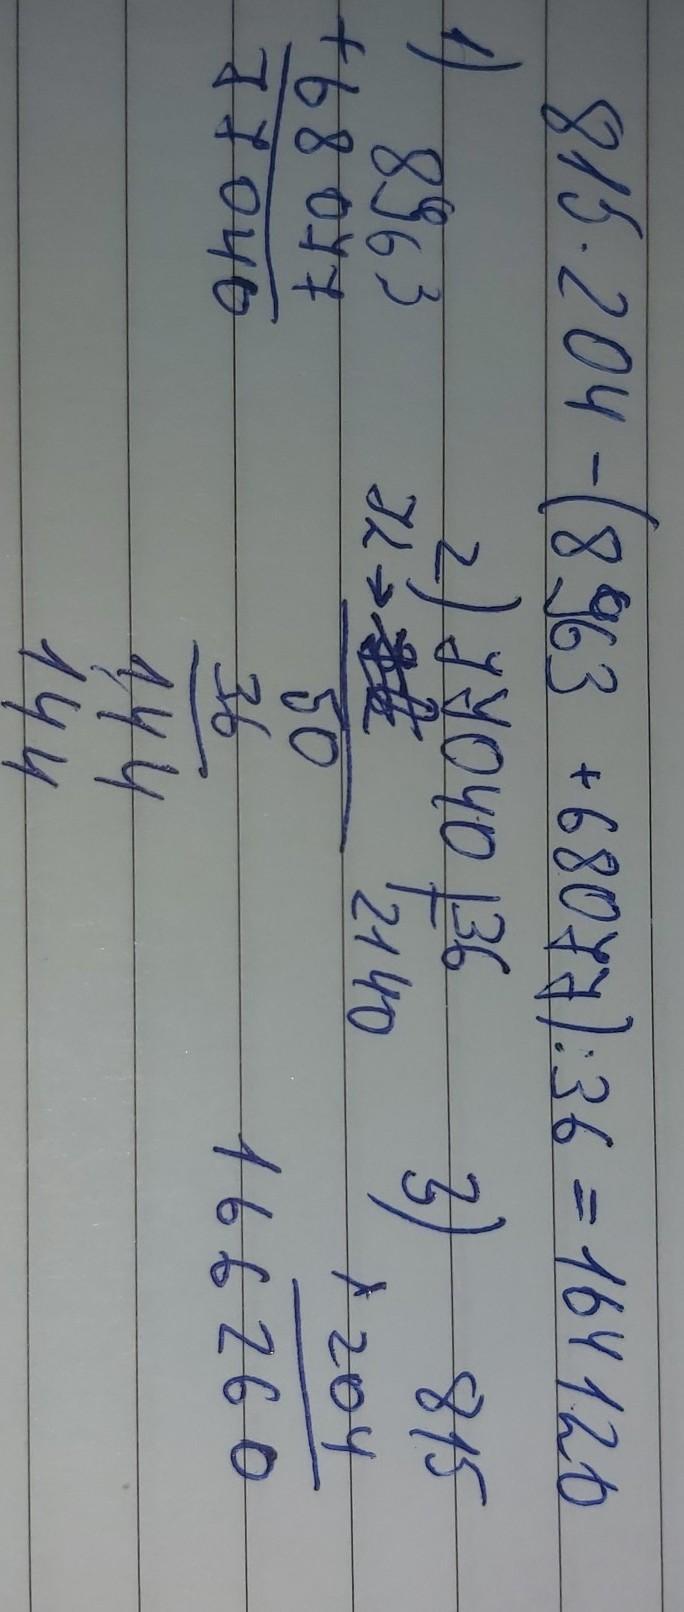 815·204-(8963+68077):36=164120
1) 8963
+68077
77040
2) 77040|36
72→
2140
50
36
144
144
3) 815
×204
166260